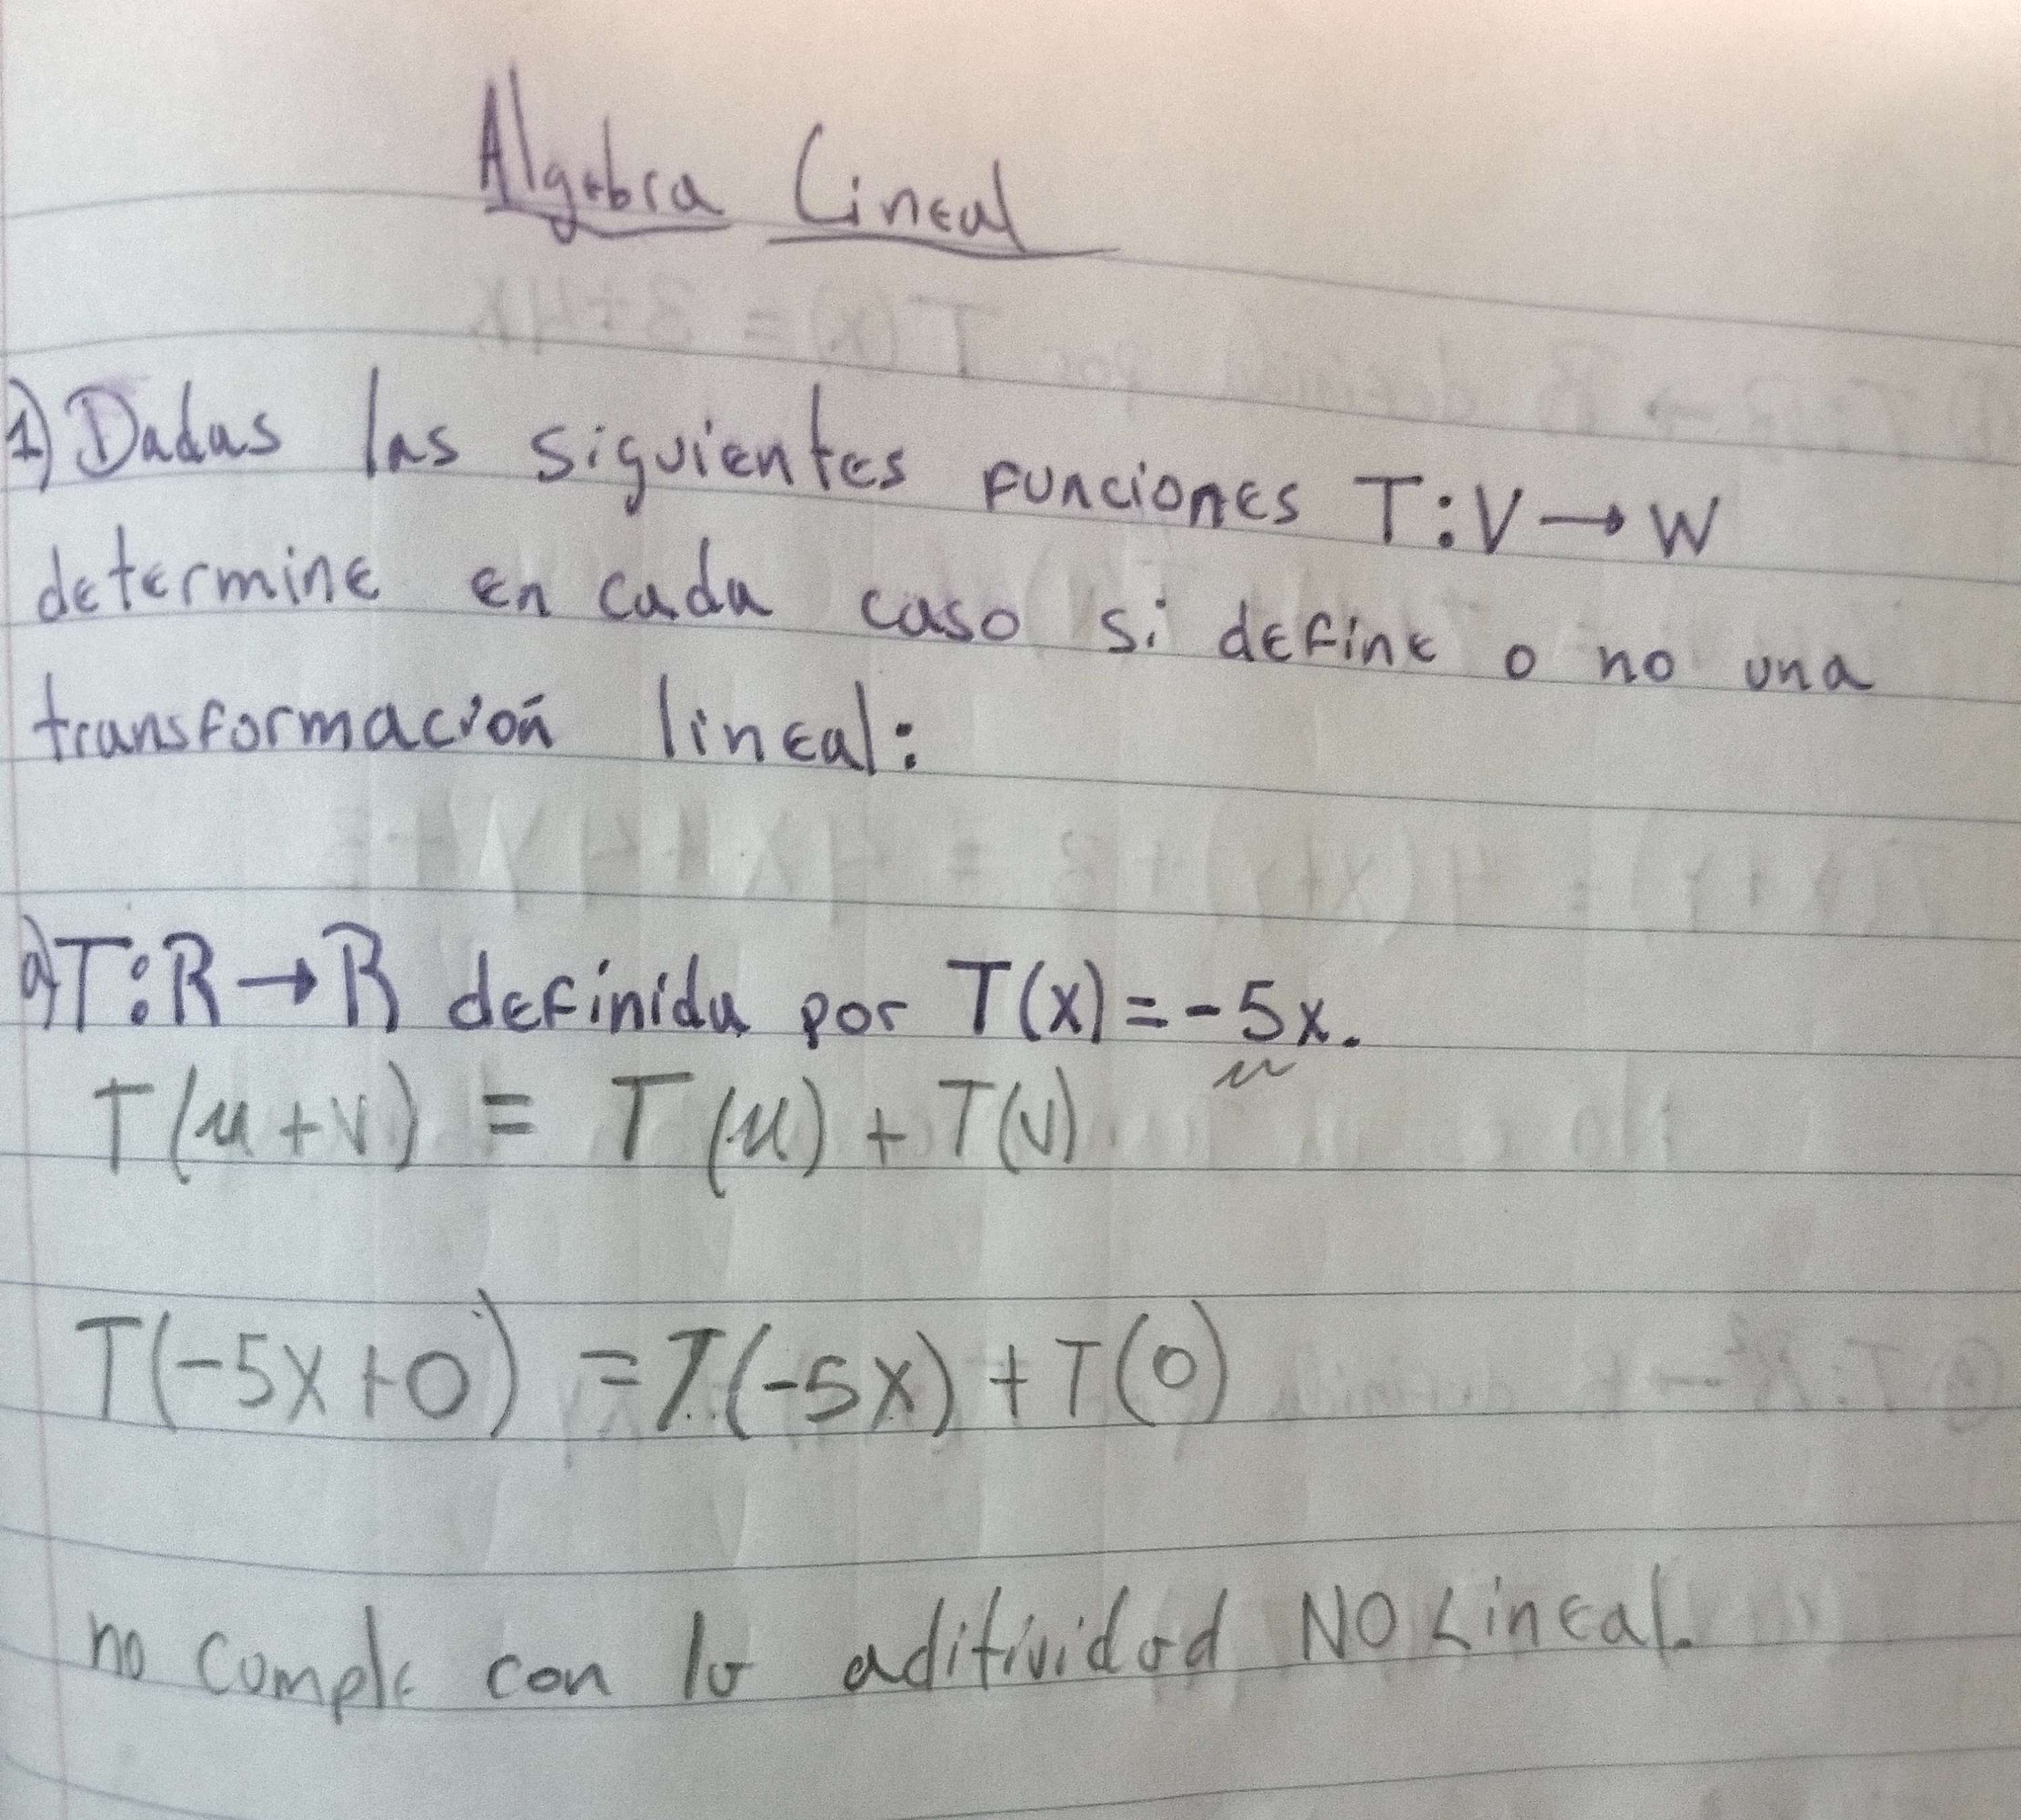 Algebra Lineal
1) Dadas las siguientes funciones T:V→W
determine en cada caso si define o no una
transformación lineal:
a) T:R→R definida por T(x)=-5x.
u
T(u+v) = T(u)+T(v)
T(-5x+0) = T(-5x)+T(0)
no cumple con la aditividad NO Lineal.